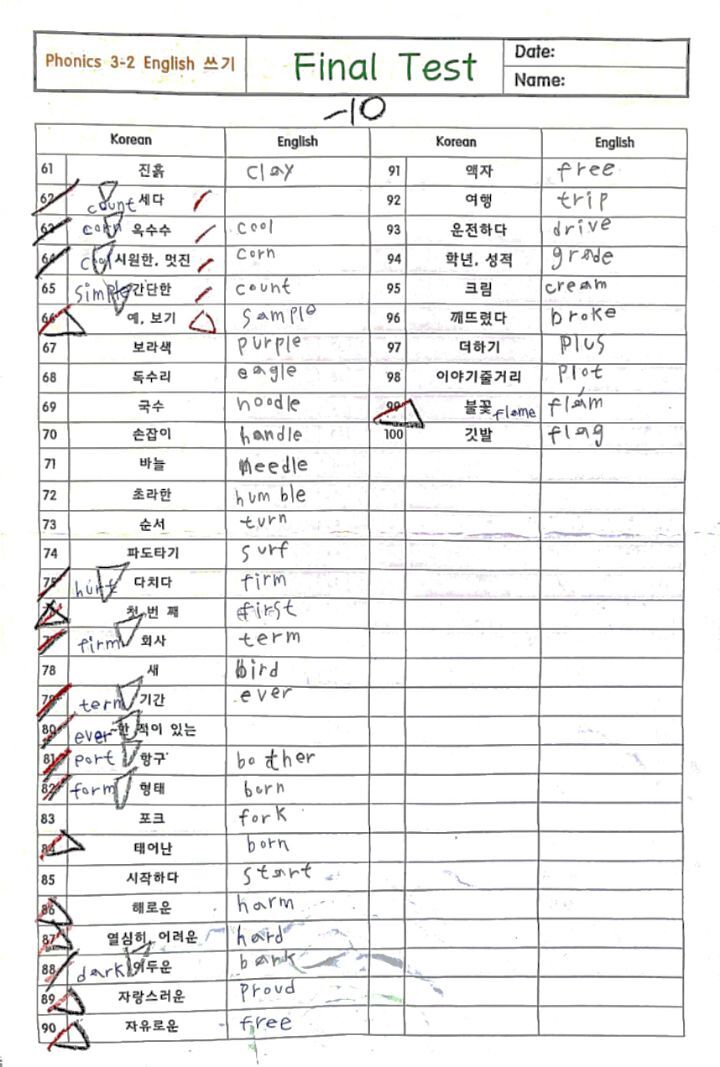 Phonics 3-2 English 쓰기 Final Test Date:
Name:
-10
Korean English Korean English
61 진흙 clay 91 액자 free
62 count 세다 92 여행 trip
63 corn 옥수수 cool 93 운전하다 drive
64 cool 시원한, 멋진 corn 94 학년, 성적 grade
65 simple 간단한 count 95 크림 cream
66 예, 보기 sample 96 깨뜨렸다 broke
67 보라색 purple 97 더하기 plus
68 독수리 eagle 98 이야기줄거리 plot
69 국수 noodle 99 불꽃 flame flam
70 손잡이 handle 100 깃발 flag
71 바늘 needle
72 초라한 humble
73 순서 turn
74 파도타기 surf
75 hurt 다치다 firm
76 첫 번 째 first
77 firm 회사 term
78 새 bird
79 term 기간 ever
80 ever ~한 적이 있는
81 port 항구 bother
82 form 형태 born
83 포크 fork
84 태어난 born
85 시작하다 start
86 해로운 harm
87 열심히, 어려운 hard
88 dark 어두운 bark
89 자랑스러운 proud
90 자유로운 free